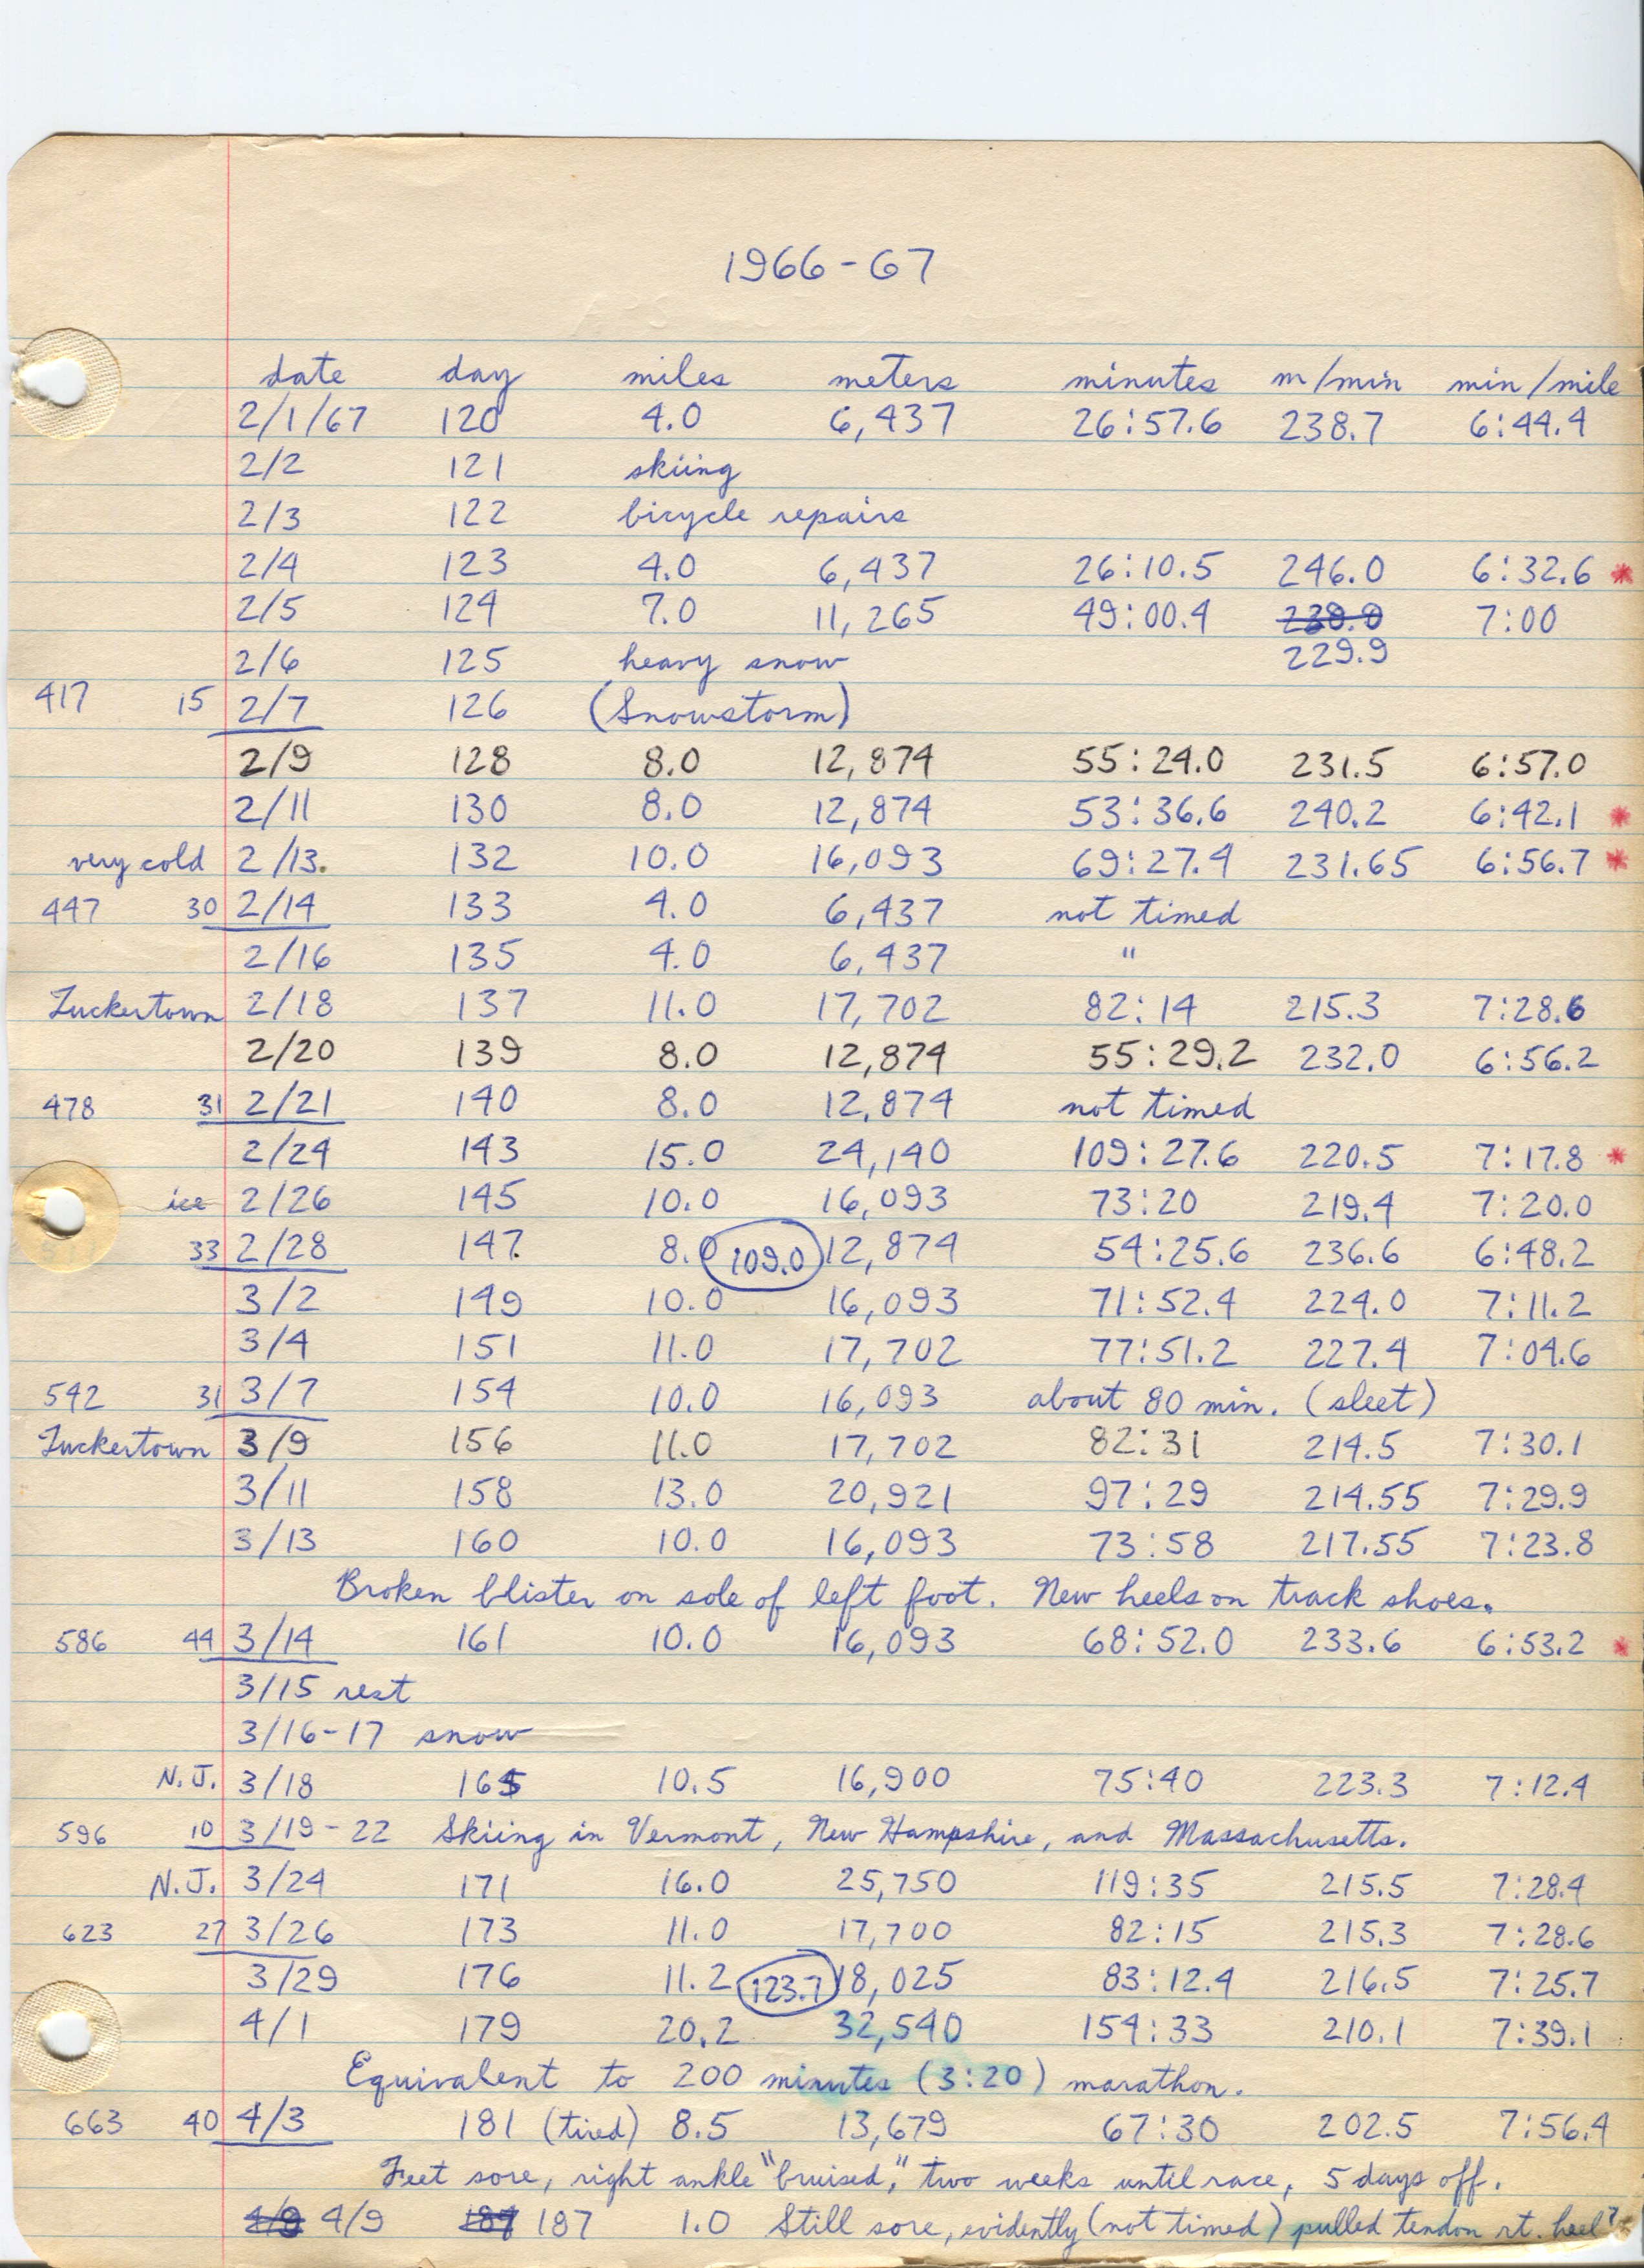 1966-67
date day miles meters minutes m/min min/mile
2/1/67 120 4.0 6,437 26:57.6 238.7 6:44.4
2/2 121 skiing
2/3 122 bicycle repairs
2/4 123 4.0 6,437 26:10.5 246.0 6:32.6 *
2/5 124 7.0 11,265 49:00.4 230.0 7:00
2/6 125 heavy snow 229.9
417 15 2/7 126 (Snowstorm)
2/9 128 8.0 12,874 55:24.0 231.5 6:57.0
2/11 130 8.0 12,874 53:36.6 240.2 6:42.1 *
very cold 2/13. 132 10.0 16,093 69:27.4 231.65 6:56.7 *
447 30 2/14 133 4.0 6,437 not timed
2/16 135 4.0 6,437 "
Tuckertown 2/18 137 11.0 17,702 82:14 215.3 7:28.6
2/20 139 8.0 12,874 55:29.2 232.0 6:56.2
478 31 2/21 140 8.0 12,874 not timed
2/24 143 15.0 24,140 109:27.6 220.5 7:17.8 *
ice 2/26 145 10.0 16,093 73:20 219.4 7:20.0
33 2/28 147. 8.0 109.0 12,874 54:25.6 236.6 6:48.2
3/2 149 10.0 16,093 71:52.4 224.0 7:11.2
3/4 151 11.0 17,702 77:51.2 227.4 7:04.6
542 31 3/7 154 10.0 16,093 about 80 min. (sleet)
Tuckertown 3/9 156 11.0 17,702 82:31 214.5 7:30.1
3/11 158 13.0 20,921 97:29 214.55 7:29.9
3/13 160 10.0 16,093 73:58 217.55 7:23.8
Broken blister on sole of left foot. New heels on track shoes.
586 44 3/14 161 10.0 16,093 68:52.0 233.6 6:53.2 *
3/15 rest
3/16-17 snow
N.J. 3/18 165 10.5 16,900 75:40 223.3 7:12.4
596 10 3/19-22 Skiing in Vermont, New Hampshire, and Massachusetts.
N.J. 3/24 171 16.0 25,750 119:35 215.5 7:28.4
623 27 3/26 173 11.0 17,700 82:15 215.3 7:28.6
3/29 176 11.2 123.7 18,025 83:12.4 216.5 7:25.7
4/1 179 20.2 32,540 154:33 210.1 7:39.1
Equivalent to 200 minutes (3:20) marathon.
663 40 4/3 181 (tired) 8.5 13,679 67:30 202.5 7:56.4
Feet sore, right ankle "bruised," two weeks until race, 5 days off.
4/9 187 1.0 Still sore, evidently (not timed) pulled tendon rt. heel?